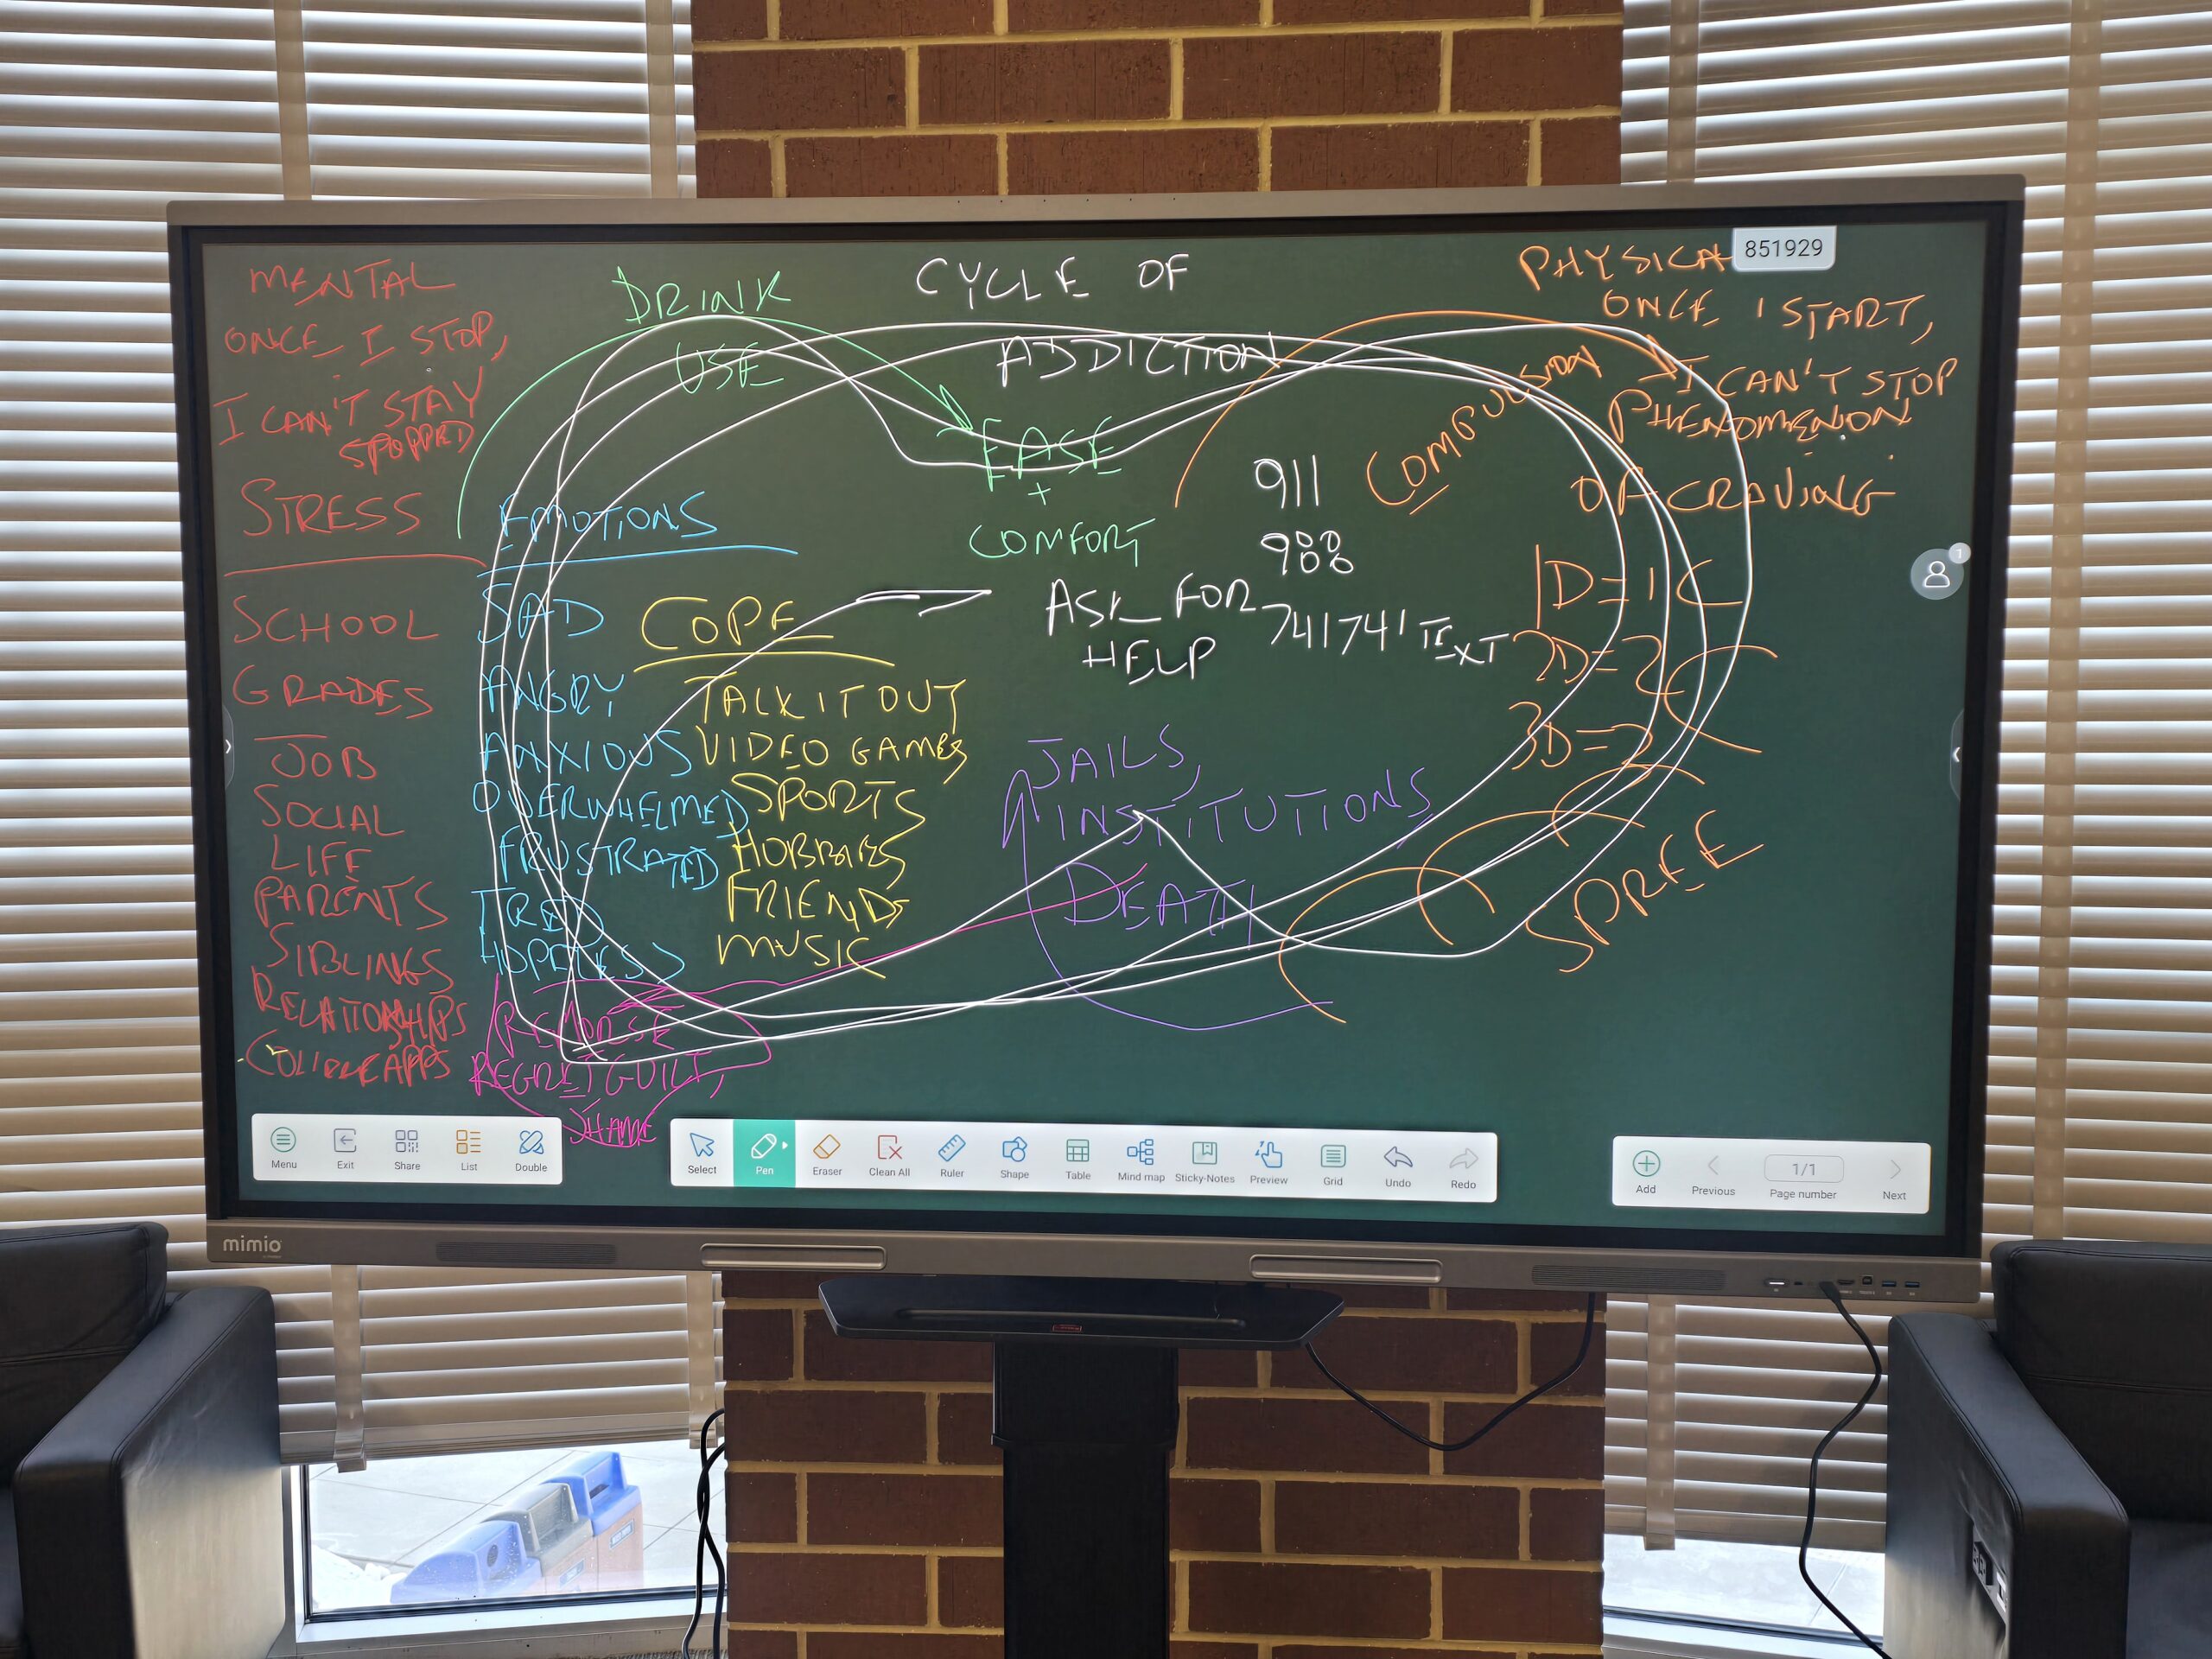 CYCLE OF
ADDICTION
MENTAL
ONCE I STOP,
I CAN'T STAY
STOPPED
STRESS
SCHOOL
GRADES
JOB
SOCIAL
LIFE
PARENTS
SIBLINGS
RELATIONSHIPS
APPS
DRINK
USE
EASE
+
COMFORT
EMOTIONS
SAD
ANGRY
ANXIOUS
OVERWHELMED
FRUSTRATED
TIRED
HOPELESS
COPE
TALK IT OUT
VIDEO GAMES
SPORTS
HOBBIES
FRIENDS
MUSIC
REMORSE
REGRET GUILT,
SHAME
911
988
ASK FOR
HELP
741741 TEXT
JAILS,
INSTITUTIONS
DEATH
PHYSICA
851929
ONCE I START,
I CAN'T STOP
PHENOMENON
OF CRAVING
COMPULSION
1D=1C
2D=2
3D=3
SPREE
1
Menu
Exit
Share
List
Double
Select
Pen
Eraser
Clean All
Ruler
Shape
Table
Mind map
Sticky-Notes
Preview
Grid
Undo
Redo
Add
Previous
1/1
Page number
Next
mimio